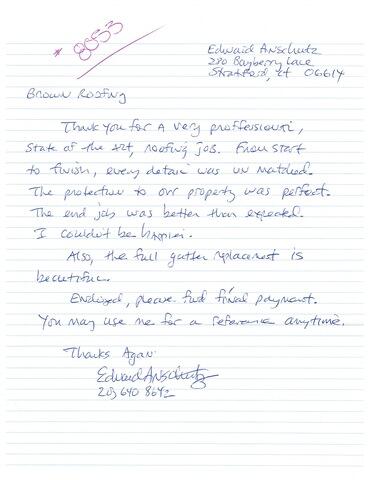 * 8053
Edward Anschutz
280 Bayberry Lace
Stratford, CT 06614
Brown Roofing
Thank you for A very proffessional,
State of the Art, roofing job. From start
to finish, every detail was un matched.
The protection to our property was perfect.
The end job was better than expected.
I couldn't be happier.
Also, the full gutter replacement is
beautiful.
Enclosed, please find final payment.
You may use me for a reference anytime.
Thanks Again
Edward Anschutz
203 640 8642